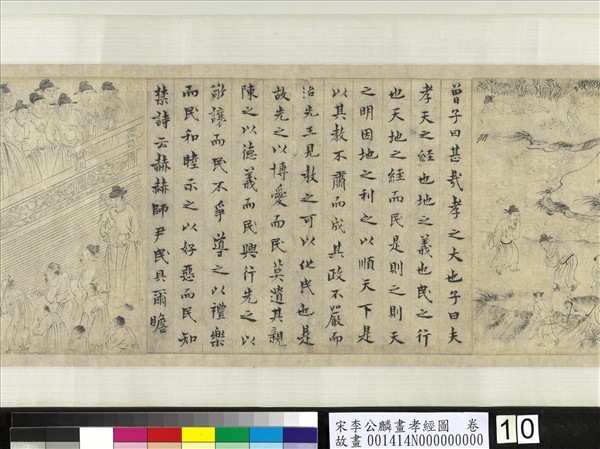 曾子曰甚哉孝之大也子曰夫
孝天之經也地之義也民之行
也天地之經而民是則之則天
之明因地之利之以順天下是
以其教不肅而成其政不嚴而
治先王見教之可以化民也是
故先之以博愛而民莫遺其親
陳之以德義而民興行先之以
敬讓而民不爭導之以禮樂
而民和睦示之以好惡而民知
禁詩云赫赫師尹民具爾瞻
宋李公麟畫孝經圖 卷
故畫 001414N000000000
10